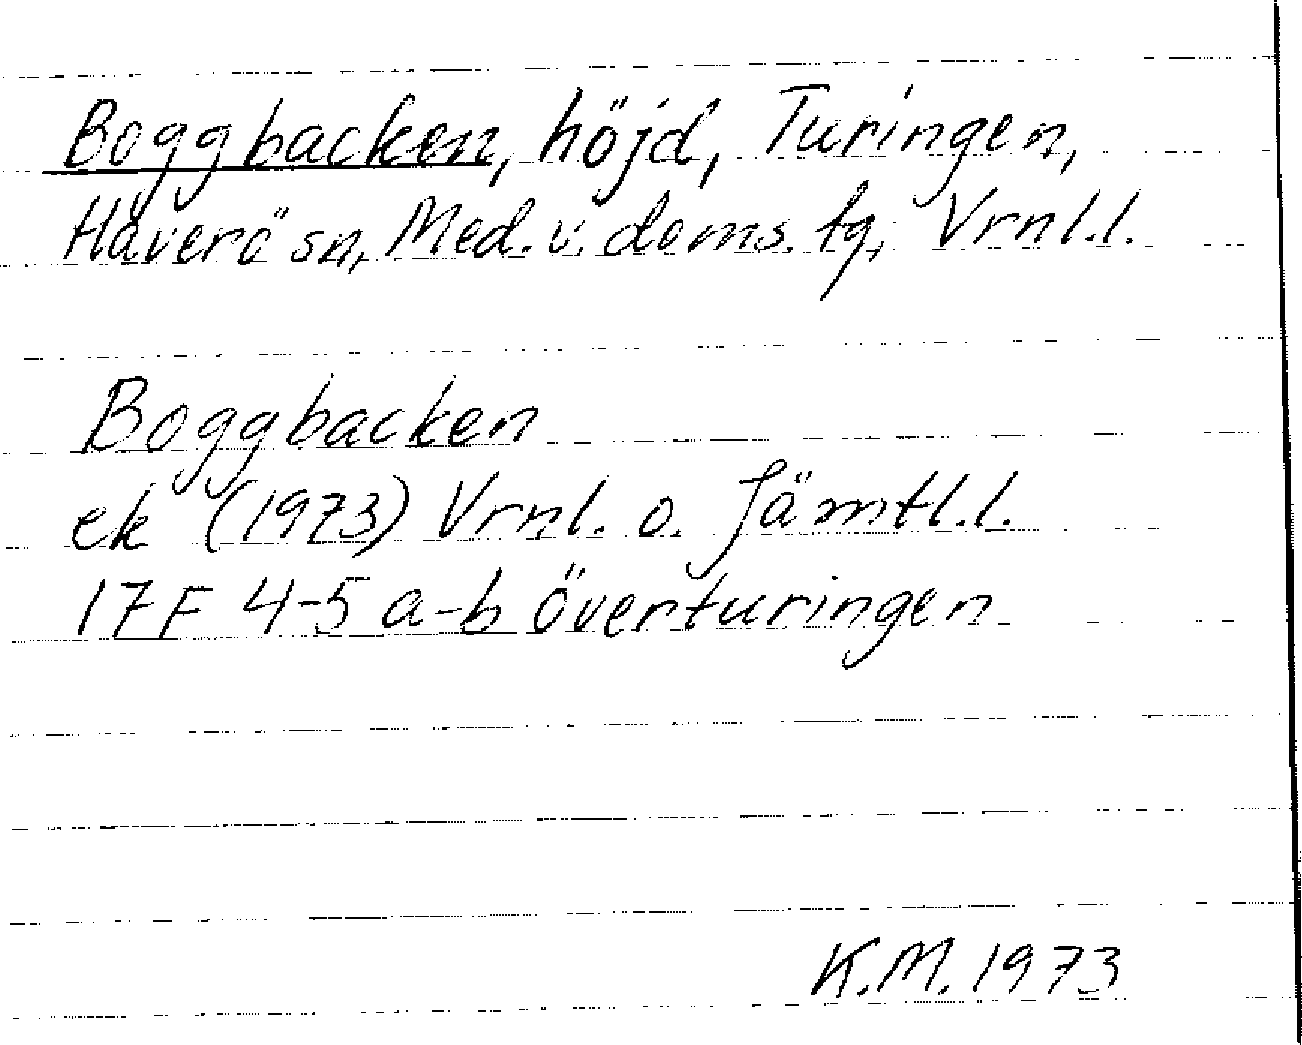 Boggbacken, höjd, Turingen,
Haverö sn, Med. v. doms. tg, Vrnl.l.
Boggbacken
ek (1973) Vrnl. o. Jämtl.l.
17F 4-5 a-b Överturingen
K.M. 1973